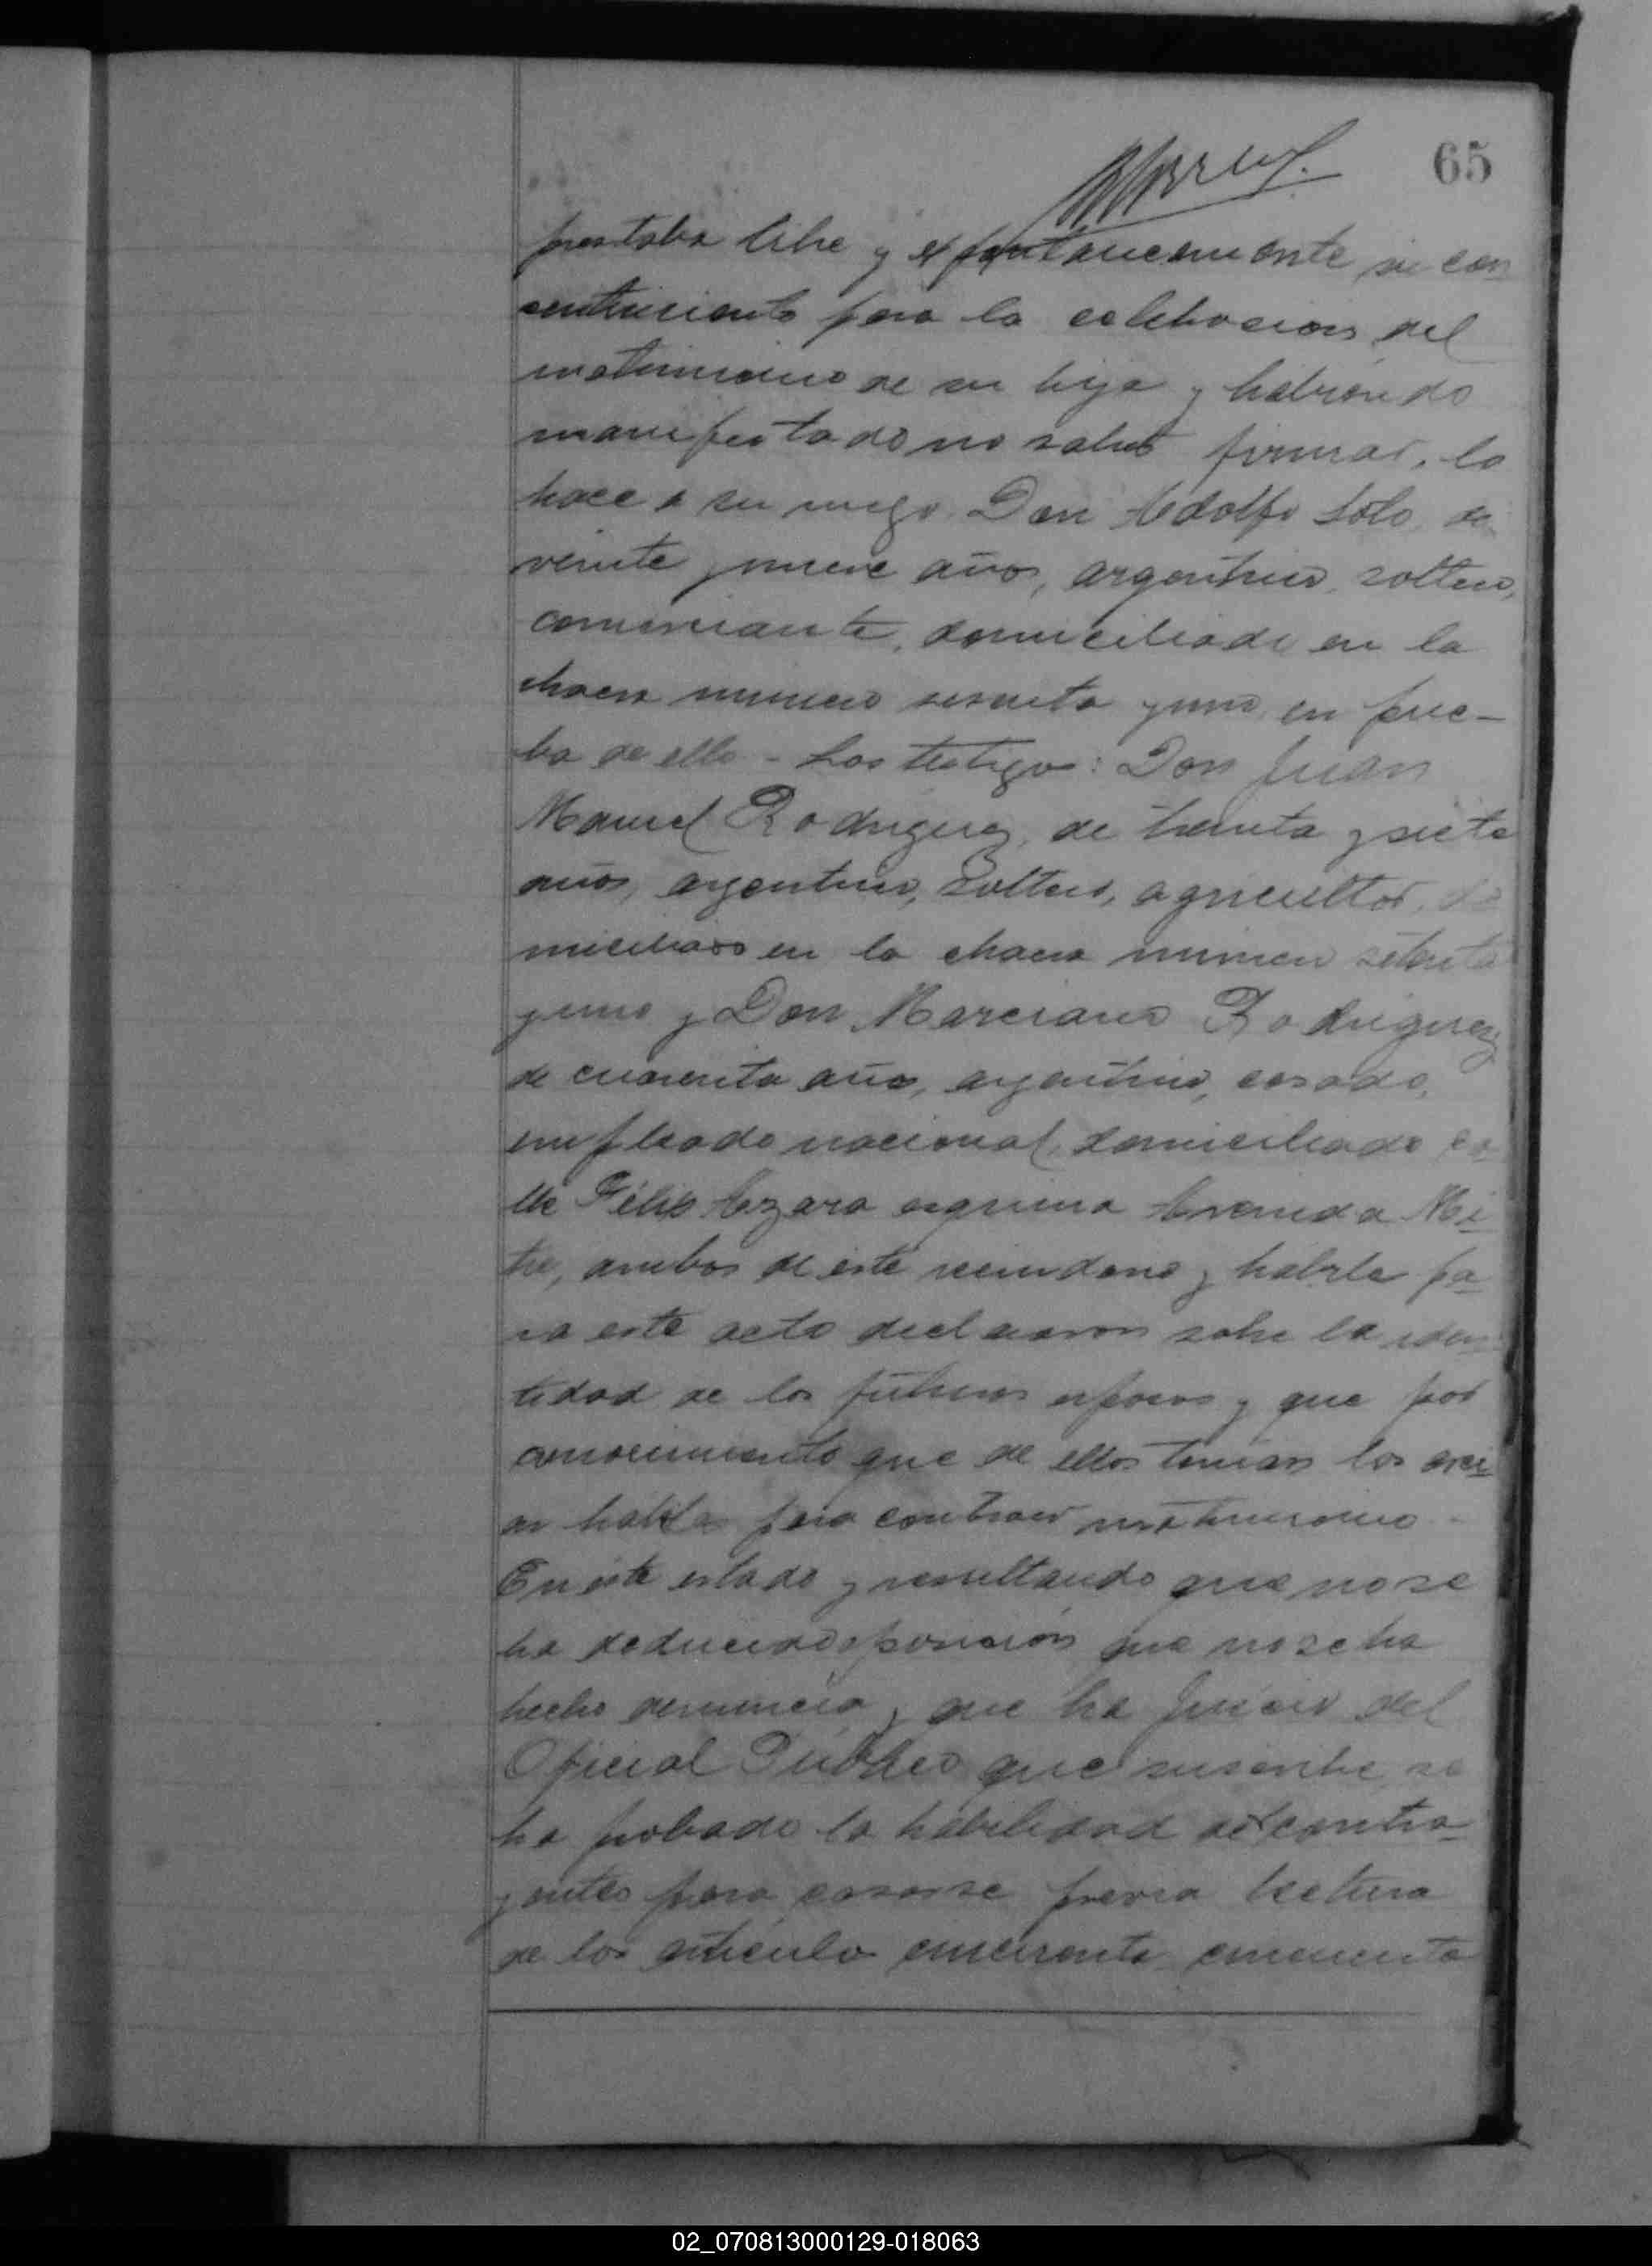 65
prestaba libre y espontaneamente su con
sentimiento para la celebracion del
matrimonio de su hija y habiendo
manifestado no saber firmar, lo
hace a su ruego Don Adolfo Soto de
veinte y nueve años, argentino, soltero,
comerciante, domiciliado en la
chacra numero sesenta y uno, en prue-
ba de ello - Los testigos: Don Juan
Manuel Rodriguez, de treinta y siete
años, argentino, soltero, agricultor, do
miciliado en la chacra numero setenta
y uno y Don Marciano Rodriguez,
de cuarenta años, argentino, casado,
empleado nacional, domiciliado ca
lle Félix Azara esquina Avenida Mi
tre, ambos de este vecindario y habiles pa
ra este acto declararon sobre la iden
tidad de los futuros esposos y que por
conocimiento que de ellos tenian los creí
an habiles para contraer matrimonio -
En este estado y resultando que no se
ha deducido oposicion que no se ha
hecho denuncia y que ha juicio del
Oficial Publico que suscribe, se
ha probado la habilidad de contra
yentes para casarse previa lectura
de los articulos cincuenta, cincuenta
02_070813000129-018063